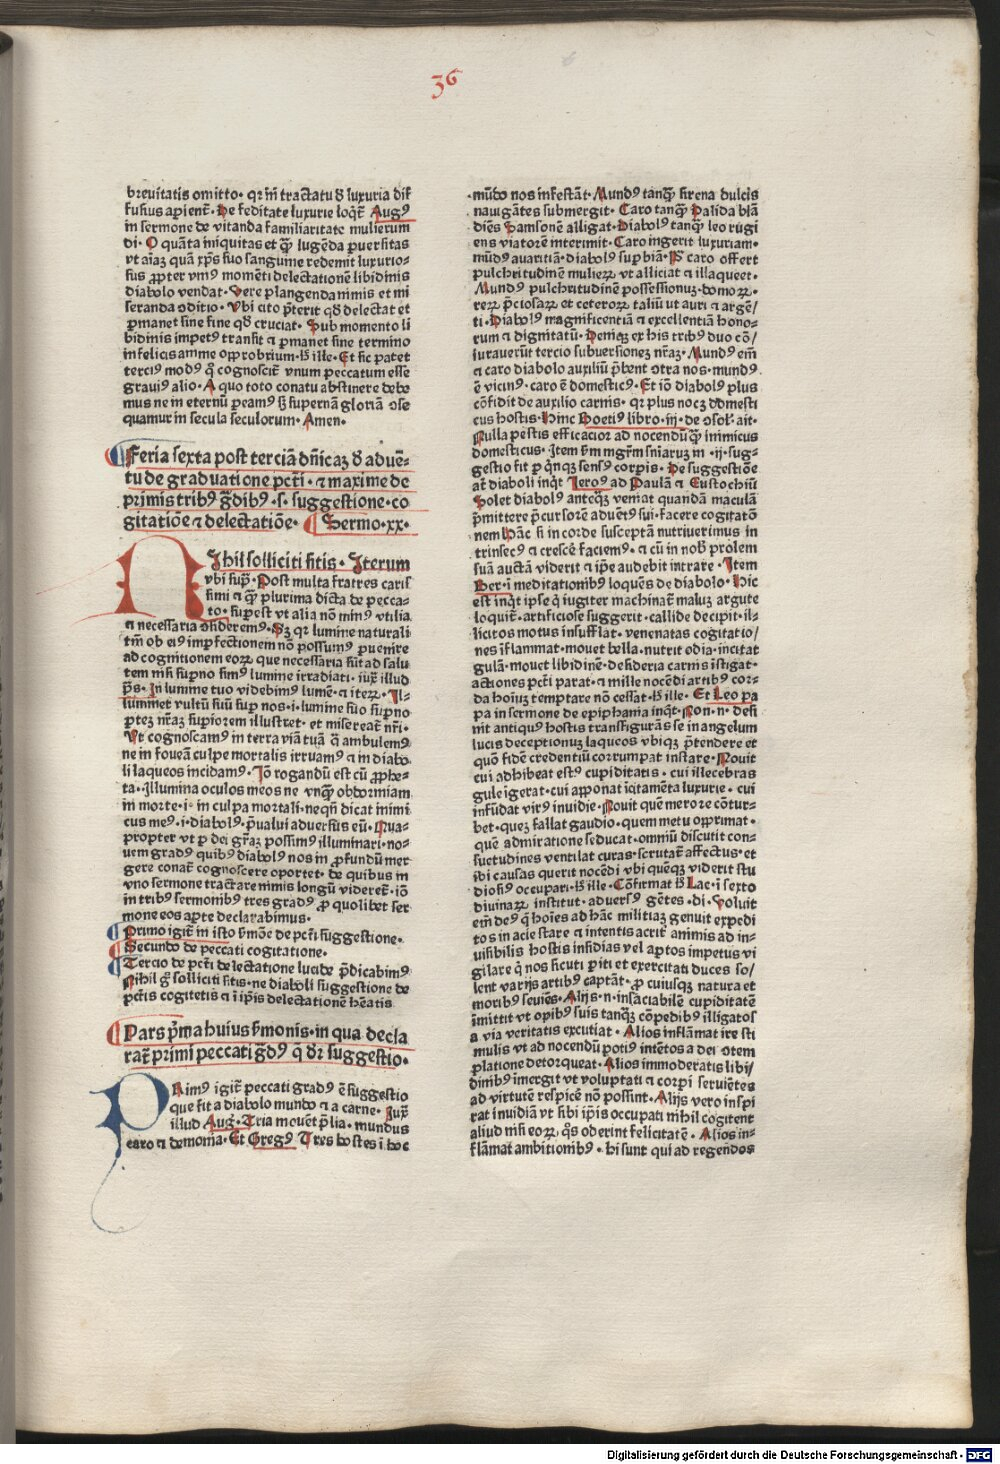 36
breuitatis omitto· qr in̄ tractatu ꝺ luxuria dif
fusius aꝑient᷑· De feditate luxurie loqt᷑ Augꝰ
in sermone de vitanda familiaritate mulierum
di· O quāta iniquitas et qꝫ̄ lugēda ꝑuersitas
vt aīaꝫ quā xp̄s suo sanguine redemit luxurio-
sus ꝓpter vniꝰ momēti delectationē libidinis
diabolo vendat· Vere plangenda nimis et mi
seranda ↄditio· Vbi cito p̄terit qꝺ delectat et
ꝑmanet sine fine qꝺ cruciat· Sub momento li
bidinis impetꝰ transit ⁊ ꝑmanet sine termino
infelicis anime opprobrium· h̄ ille· Et sic patet
terciꝰ modꝰ q̄ cognoscit᷑ vnum peccatum esse
grauiꝰ alio· A quo toto conatu abstinere debe
mus ne in eternū ꝑeamꝰ sꝫ supernā gloriā ↄse
quamur in secula seculorum· Amen·
Feria sexta post terciā dn̄icaꝫ ꝺ aduē-
tu de graduatione pct̄i· ⁊ maxime de
primis tribꝰ g̈dibꝰ ·s· suggestione· co
gitatiōe ⁊ delectatiōe· Sermo·xx·
Nihil solliciti sitis· Iterum
vbi supͣ· Post multa fratres caris
simi ⁊ qꝫ̄ plurima dicta de pecca-
to· suꝑest vt alia nō minꝰ vtilia
⁊ necessaria ↄsideremꝰ· Sꝫ qr lumine naturali
tm̄ ob eiꝰ imꝑfectionem nō possumꝰ ꝑuenire
ad cognitionem eoꝝ que necessaria sūt ad salu
tem nisi suꝑno simꝰ lumine irradiati· iuxͣ illud
ps̄· In lumine tuo videbimꝰ lumē· ⁊ iteꝝ· Il-
luminet vultū suū suꝑ nos· i· lumine suo suꝑno
ꝓteꝫ nr̄aꝫ suꝑiorem illustret· et misereat᷑ nr̄i·
Vt cognoscamꝰ in terra viā tuā q̄ ambulemꝰ
ne in foueā culpe mortalis irruamꝰ ⁊ in diabo
li laqueos incidamꝰ· Iō rogandū est cū ꝓphe-
ta· Illumina oculos meos ne vnqꝫ̄ obdormiam
in morte· i· in culpa mortali· neqn̄ dicat inimi
cus meꝰ· i· diabolꝰ· p̄ualui aduersus eū· Qua-
propter vt ꝑ dei gr̄aꝫ possimꝰ illuminari· no-
uem gradꝰ quibꝰ diabolꝰ nos in ꝓfundū mer
gere conat᷑ cognoscere oportet· de quibus in
vno sermone tractare nimis longū videret᷑· iō
in tribꝰ sermonibꝰ tres gradꝰ ꝓ quolibet ser
mone eos aꝑte declarabimus·
Primo igit᷑ in isto ẜmōe de pct̄i suggestione·
Secundo de peccati cogitatione·
Tercio de pct̄i delectatione lucide p̄dicabimꝰ
Nihil gͦ solliciti sitis· ne diaboli suggestione de
pct̄is cogitetis ⁊ ī ip̄is delectationē h̄eatis
Pars pͥma huius ẜmonis· in qua decla
rat᷑ primi peccati g̈dꝰ q̄ dr̄ suggestio·
PRimꝰ igit᷑ peccati gradꝰ ē suggestio
que fit a diabolo mundo ⁊ a carne· Iuxͣ
illud Augꝰ· Tria mouēt p̄lia· mundus
caro ⁊ demonia· Et Gregꝰ Tres hostes ī hoc
mūdo nos infestāt· Mundꝰ tanqꝫ̄ sirena dulcis
nauigātes submergit· Caro tanqꝫ̄ Dalida blā
diēs Samsonē alligat· Diabolꝰ tanqꝫ̄ leo rugi
ens viatorē interimit· Caro ingerit luxuriam·
mūdꝰ auaritiā· diabolꝰ suꝑbiā· Pͥs caro offert
pulchritudinē mulieꝝ vt alliciat ⁊ illaqueet·
Mundꝰ pulchritudinē possessionuꝫ· domoꝝ·
reꝝ p̄ciosaꝝ et ceteroꝝ taliū vt auri ⁊ argē/
ti· Diabolꝰ magnificentiā ⁊ excellentiā hono-
rum ⁊ dignitatū· Deniqꝫ ex his tribꝰ duo cō/
iurauerūt tercio subuersioneꝫ nr̄aꝫ· Mundꝰ em̄
⁊ caro diabolo auxiliū p̄bent ↄtra nos· mundꝰ
ē vicinꝰ· caro ē domesticꝰ· Et iō diabolꝰ plus
cōfidit de auxilio carnis· qr plus nocꝫ domesti
cus hostis· Hinc Boetiꝰ libro·iij· de ↄsol· ait·
Nulla pestis efficacior ad nocendū qꝫ̄ inimicus
domesticus· Item ẜm mgr̄m sniaruꝫ in ·ij· sug-
gestio fit ꝑ qͥnqꝫ sensꝰ corꝑis· De suggestiōe
at̄ diaboli inqt̄ Ieroꝰ ad Paulā ⁊ Eustochiū
Solet diabolꝰ anteqꝫ̄ veniat quandā maculā
p̄mittere p̄cursorē aduētꝰ sui· facere cogitatō
nem Hāc si in corde susceptā nutriuerimus in
trinsecꝰ ⁊ crescē faciemꝰ· ⁊ cū in nob̄ prolem
suā auctā viderit ⁊ ip̄e audebit intrare· Item
Ber· ī meditationibꝰ loquēs de diabolo· Hic
est inqt̄ ipse q̄ iugiter machinat᷑ maluꝫ argute
loquit᷑· artificiose suggerit· callide decipit· il-
licitos motus insufflat· venenatas cogitatio/
nes īflammat· mouet bella· nutrit odia· incitat
gulā· mouet libidinē· desideria carnis īstigat·
actiones pct̄i parat· ⁊ mille nocēdi artibꝰ cor-
da hoīuꝫ temptare nō cessat· h̄ ille· Et Leo pa
pa in sermone de epiphania inqt̄· Non·n· desi
nit antiquꝰ hostis transfigurās se in angelum
lucis deceptionuꝫ laqueos vbiqꝫ p̄tendere et
quō fidē credentiū corrumpat instare· Nouit
cui adhibeat estꝰ cupiditatis· cui illecebras
gule īgerat· cui apponat īcitamēta luxurie· cui
infūdat virꝰ inuidie· Nouit quē merore cōtur-
bet· queꝫ fallat gaudio· quem metu opprimat·
quē admiratione seducat· omniū discutit con-
suetudines ventilat curas· scrutat᷑ affectus· et
ibi causas querit nocēdi vbi quēqꝫ viderit stu
diosiꝰ occupari· h̄ ille· Cōfirmat h̄ Lac· ī sexto
diuinaꝝ institut· aduersꝰ gētes· di· Voluit
em̄ deꝰ q̄ hoīes ad hāc militiaꝫ genuit expedi
tos in acie stare ⁊ intentis acrit᷑ animis ad in-
uisibilis hostis insidias vel aptos impetus vi
gilare q̄ nos sicuti ꝑiti et exercitati duces so/
lent varijs artibꝰ captāt· ꝓ cuiusqꝫ natura et
moribꝰ seuiēs· Alijs·n· insaciabilē cupiditatē
īmittit vt opibꝰ suis tanqꝫ cōpedibꝰ illigatos
a via veritatis excutiat· Alios inflāmat ire sti
mulis vt ad nocendū potiꝰ intētos a dei ↄtem
platione detorqueat· Alios immoderatis libi/
dinibꝰ imergit vt voluptati ⁊ corpi seruiētes
ad virtutē respicē nō possint· Alijs vero inspi
rat inuidiā vt sibi ip̄is occupati nihil cogitent
aliud nisi eoꝝ qͦs oderint felicitatē· Alios in-
flāmat ambitionibꝰ· hi sunt qui ad regendos
Digitalisierung gefördert durch die Deutsche Forschungsgemeinschaft - DFG